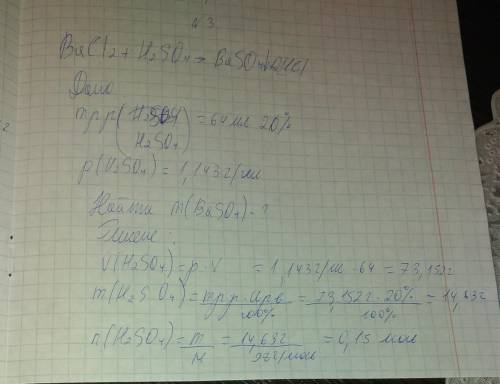 №3.
BaCl2 + H2SO4 → BaSO4↓+2HCl
Дано
mрр(H2SO4) = 64 мл 20%
H2SO4
ρ(H2SO4) = 1,143 г/мл
Найти m(BaSO4) - ?
V(H2SO4) = ρ · V = 1,143 г/мл · 64 = 73,152 г
m(H2SO4) = mр.р · / 100% = 73,152 г · 20% / 100% = 14,63 г
n(H2SO4) = m / M = 14,63 г / 98 г/моль = 0,15 моль